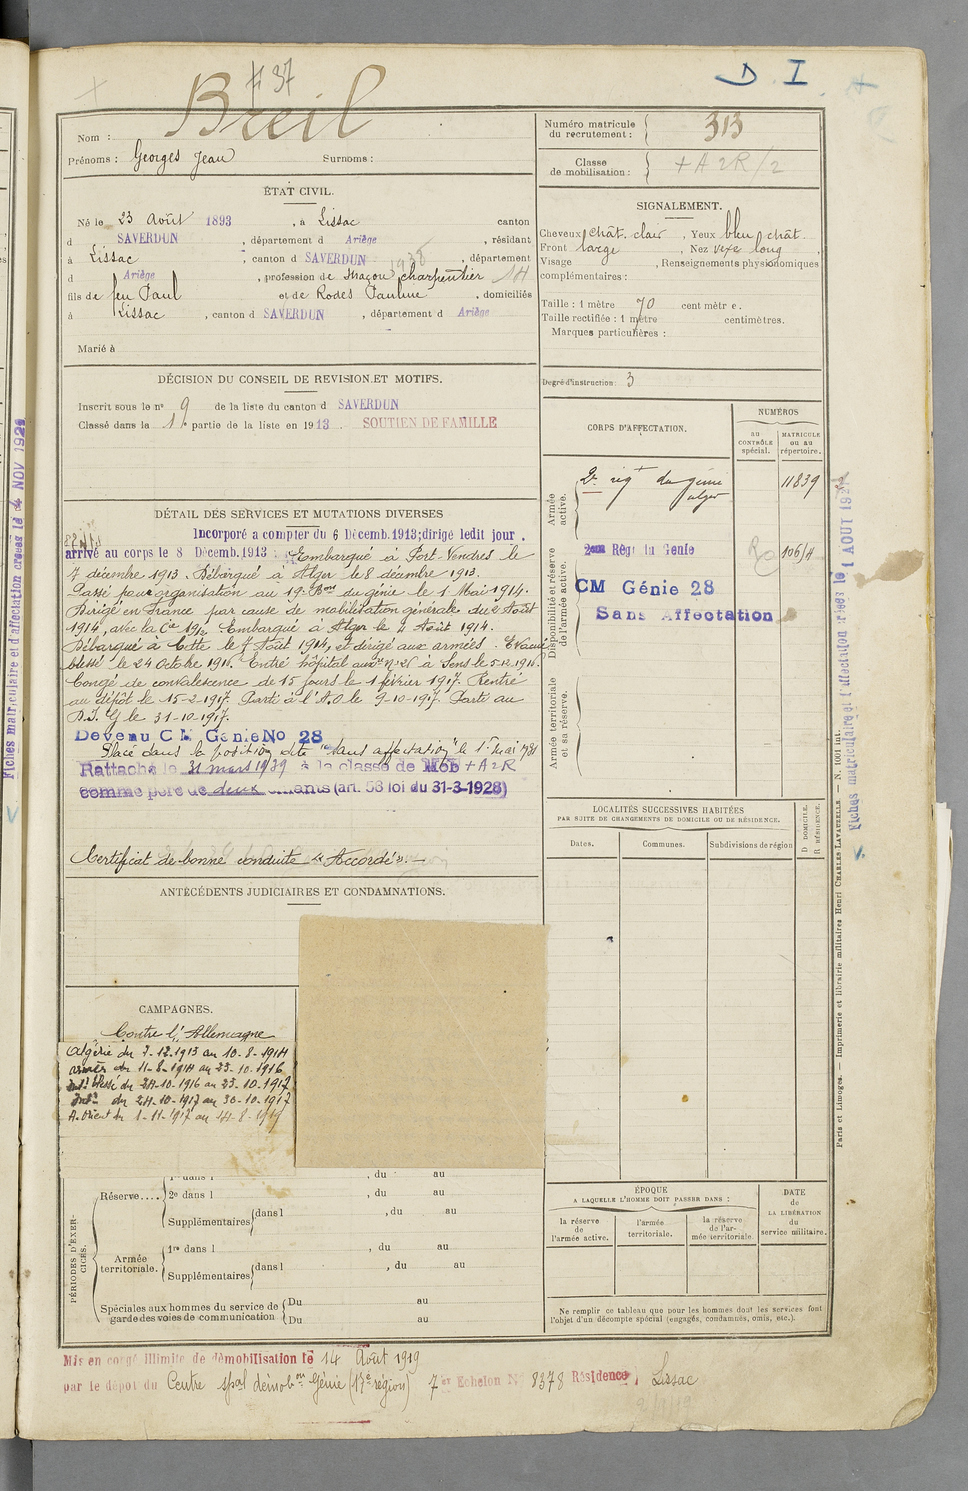 # 37
D. I.
Breil
Nom :
Prénoms : Georges Jean Surnoms :
Numéro matricule du recrutement : 313
Classe de mobilisation : + A 2 R/2
ÉTAT CIVIL.
Né le 23 Août 1893, à Lissac canton
d SAVERDUN, département d Ariège, résidant
à Lissac, canton d SAVERDUN, département
d Ariège, profession de Maçon charpentier
fils de feu Paul et de Rodes Pauline, domiciliés
à Lissac, canton d SAVERDUN, département d Ariège
Marié à
SIGNALEMENT.
Cheveux chât. clair, Yeux bleu chât.
Front large, Nez vexe long
Visage , Renseignements physionomiques
complémentaires :
Taille : 1 mètre 70 centimètre.
Taille rectifiée : 1 mètre centimètres.
Marques particulières :
Degré d'instruction : 3
DÉCISION DU CONSEIL DE REVISION ET MOTIFS.
Inscrit sous le n° 9 de la liste du canton d SAVERDUN
Classé dans la 1e partie de la liste en 1913. SOUTIEN DE FAMILLE
CORPS D'AFFECTATION.
NUMÉROS
au CONTRÔLE spécial.
MATRICULE ou au répertoire.
Armée active.
2e régt du génie 11839
alger
Disponibilité et réserve de l'armée active.
2ème Régt du Génie 106/4
CM Génie 28
Sans Affectation
Armée territoriale et sa réserve.
DÉTAIL DES SERVICES ET MUTATIONS DIVERSES
Incorporé a compter du 6 Décemb.1913;dirigé ledit jour.
arrivé au corps le 8 Décemb.1913 : Embarqué à Port-Vendres le
7 décembre 1913. Débarqué à Alger le 8 décembre 1913.
Passé pour organisation au 19e Bon du génie le 1 Mai 1914.
Dirigé en France par cause de mobilisation générale du 2 Août
1914, avec la Cie 19/2 Embarqué à Alger le 4 Août 1914.
Débarqué à Cette le 7 Août 1914, et dirigé aux armées. Evacué
blessé le 24 Octobre 1916. Entré hôpital auxre N° 26 à Sens le 5-12-1916.
Congé de convalescence de 15 jours le 1 février 1917. Rentré
au dépôt le 15-2-1917. Parti à l'A.O le 9-10-1917. Parti au
le 31-10-1917.
Devenu C M Génie No 28
Placé dans la position dite "sans affectation" le 1er mai 1931
Rattaché le 31 mars 1939 à la classe de Mob + A 2 R
comme père de deux enfants (art. 58 loi du 31-3-1928)
Certificat de bonne conduite "Accordé".
ANTÉCÉDENTS JUDICIAIRES ET CONDAMNATIONS.
LOCALITÉS SUCCESSIVES HABITÉES
PAR SUITE DE CHANGEMENTS DE DOMICILE OU DE RÉSIDENCE.
Dates. Communes. Subdivisions de région
D DOMICILE. R RÉSIDENCE.
CAMPAGNES.
Contre l'Allemagne
Algérie du 7-12-1913 au 10-8-1914
armées du 11-8-1914 au 23-10-1916
Intr blessé du 24-10-1916 au 23-10-1917
Intr du 24-10-1917 au 30-10-1917
A. Orient du 1-11-1917 au 14-8-1919
PÉRIODES D'EXERCICES.
Réserve....
1re dans l , du au
2e dans l , du au
Supplémentaires dans l , du au
Armée territoriale.
1re dans l , du au
Supplémentaires dans l , du au
Spéciales aux hommes du service de garde des voies de communication
Du au
Du au
ÉPOQUE
A LAQUELLE L'HOMME DOIT PASSER DANS :
la réserve de l'armée active.
l'armée territoriale.
la réserve de l'armée territoriale.
DATE de LA LIBÉRATION du service militaire.
Ne remplir ce tableau que pour les hommes dont les services font
l'objet d'un décompte spécial (engagés, condamnés, omis, etc.).
Mis en congé illimité de démobilisation le 14 Août 1919
par le dépôt du Centre spal démobon Génie (17e région) 7er Echelon No 8378 Résidence, Lissac
Paris et Limoges. — Imprimerie et librairie militaires Henri CHARLES LAVAUZELLE. — N. 1001 int.
Fiches matriculaire et d'affectation créées le 1 AOUT
Fiches matriculaire et d'affectation créées le 4 NOV 1921